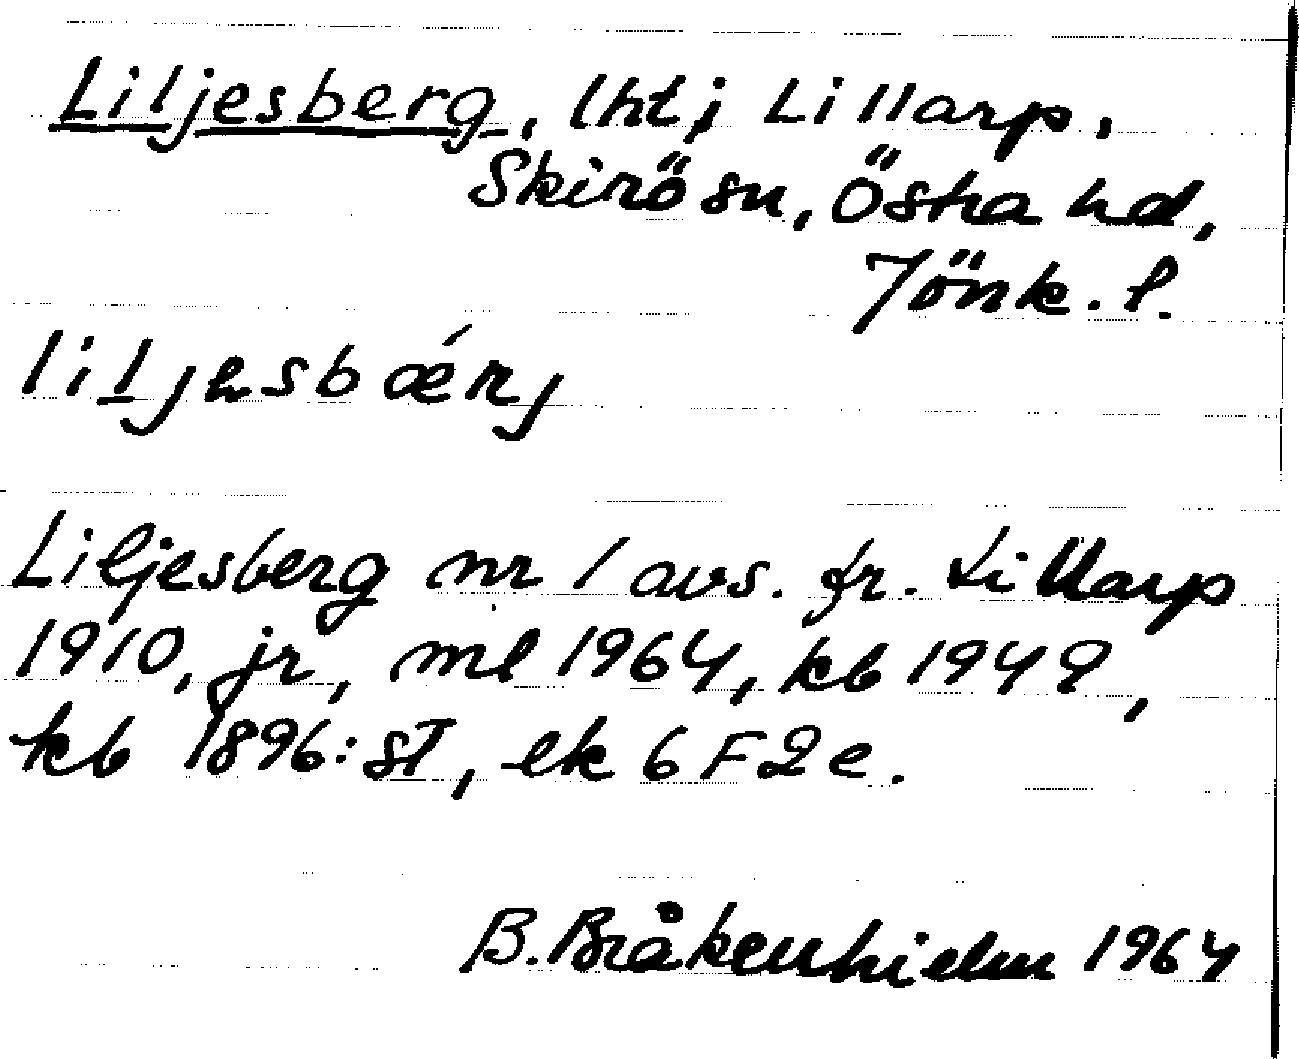 Liljesberg, lht i Lillarp,
Skirö sn, Östra hd,
Jönk. l.
liljesbǽrj
Liljesberg nr 1 avs. fr. Lillarp
1910, jr, ml 1964, kb 1949,
kb 1896: st, ek 6 F 2 e.
B. Bråkenhielm 1964